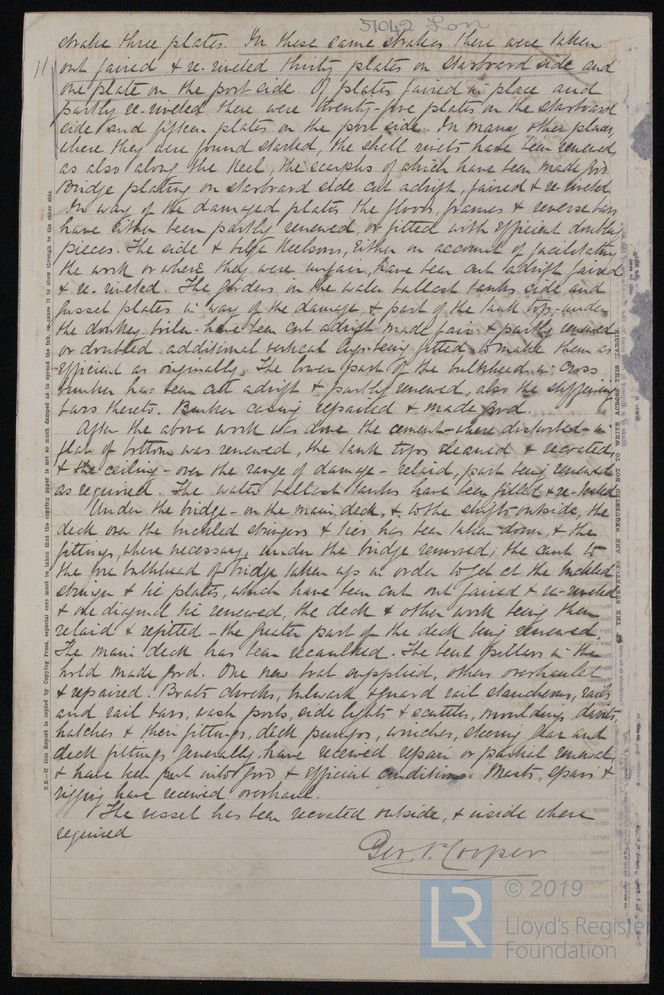 51042 Lon
strake three plates. In these same strakes there were taken
11 out faired & re-riveted thirty plates on starboard side and
one plate on the port side. Of plates faired in place and
partly re-riveted there were twenty-five plates on the starboard
side and fifteen plates on the port side. In many other places,
where they were found started, the shell rivets have been renewed
as also along the keel, the scarphs of which have been made good.
Bridge plating on starboard side cut adrift, faired & re-riveted
In way of the damaged plates the floors, frames & reverse bars
have either been partly renewed, or fitted with efficient doubling
pieces. The side & bilge keelsons, either on account of facilitating
the work or where they were unfair, have been cut adrift faired
& re-riveted. The girders in the water ballast tanks side and
gusset plates in way of the damage, & part of the tank tops - under
the donkey boiler - have been cut adrift made fair & partly renewed
or doubled additional vertical angs being fitted to make them as
efficient as originally. The lower part of the bulkhead in cross
bunker has been cut adrift & partly renewed, also the stiffening
bars thereto. Bunker casing repaired & made good.
After the above work was done the cement - where disturbed - in
flat of bottom was renewed, the tank tops cleaned & recoated,
& the ceiling - over the range of damage - relaid, part being renewed
as required. The water ballast tanks have been filled & re-tested
Under the bridge - on the main deck, & to the shafts outside, the
deck over the buckled stringers & ties has been taken down, & the
fittings, where necessary, under the bridge removed, the cant to
the fore bulkhead of bridge taken up in order to get at the buckled
stringer & tie plates, which have been cut out faired & re-riveted
& one diagonal tie renewed, the deck & other work being then
relaid & refitted - the greater part of the deck being renewed.
The main deck has been recaulked. The bent pillars in the
hold made good. One new boat supplied, others overhauled
& repaired. Boats chocks, bulwark & guard rail stanchions, rails
and rail bars, wash ports, side lights & scuttles, moulding, davits,
hatches & their fittings, deck pumps, winches, steering gear and
deck fittings generally, have received repair or partial renewal,
& have been put into good & efficient condition. Masts, spars &
rigging have received overhaul.
The vessel has been recoated outside, & inside where
required
Geo. V. Cooper
N.B.—If this Report is copied by Copying Press, especial care must be taken that the copying paper is not so much damped as to spread the ink, or cause it to show through to the other side.
THE SURVEYORS ARE REQUESTED NOT TO WRITE ACROSS THIS MARGIN.
LR
© 2019
Lloyd's Register
Foundation